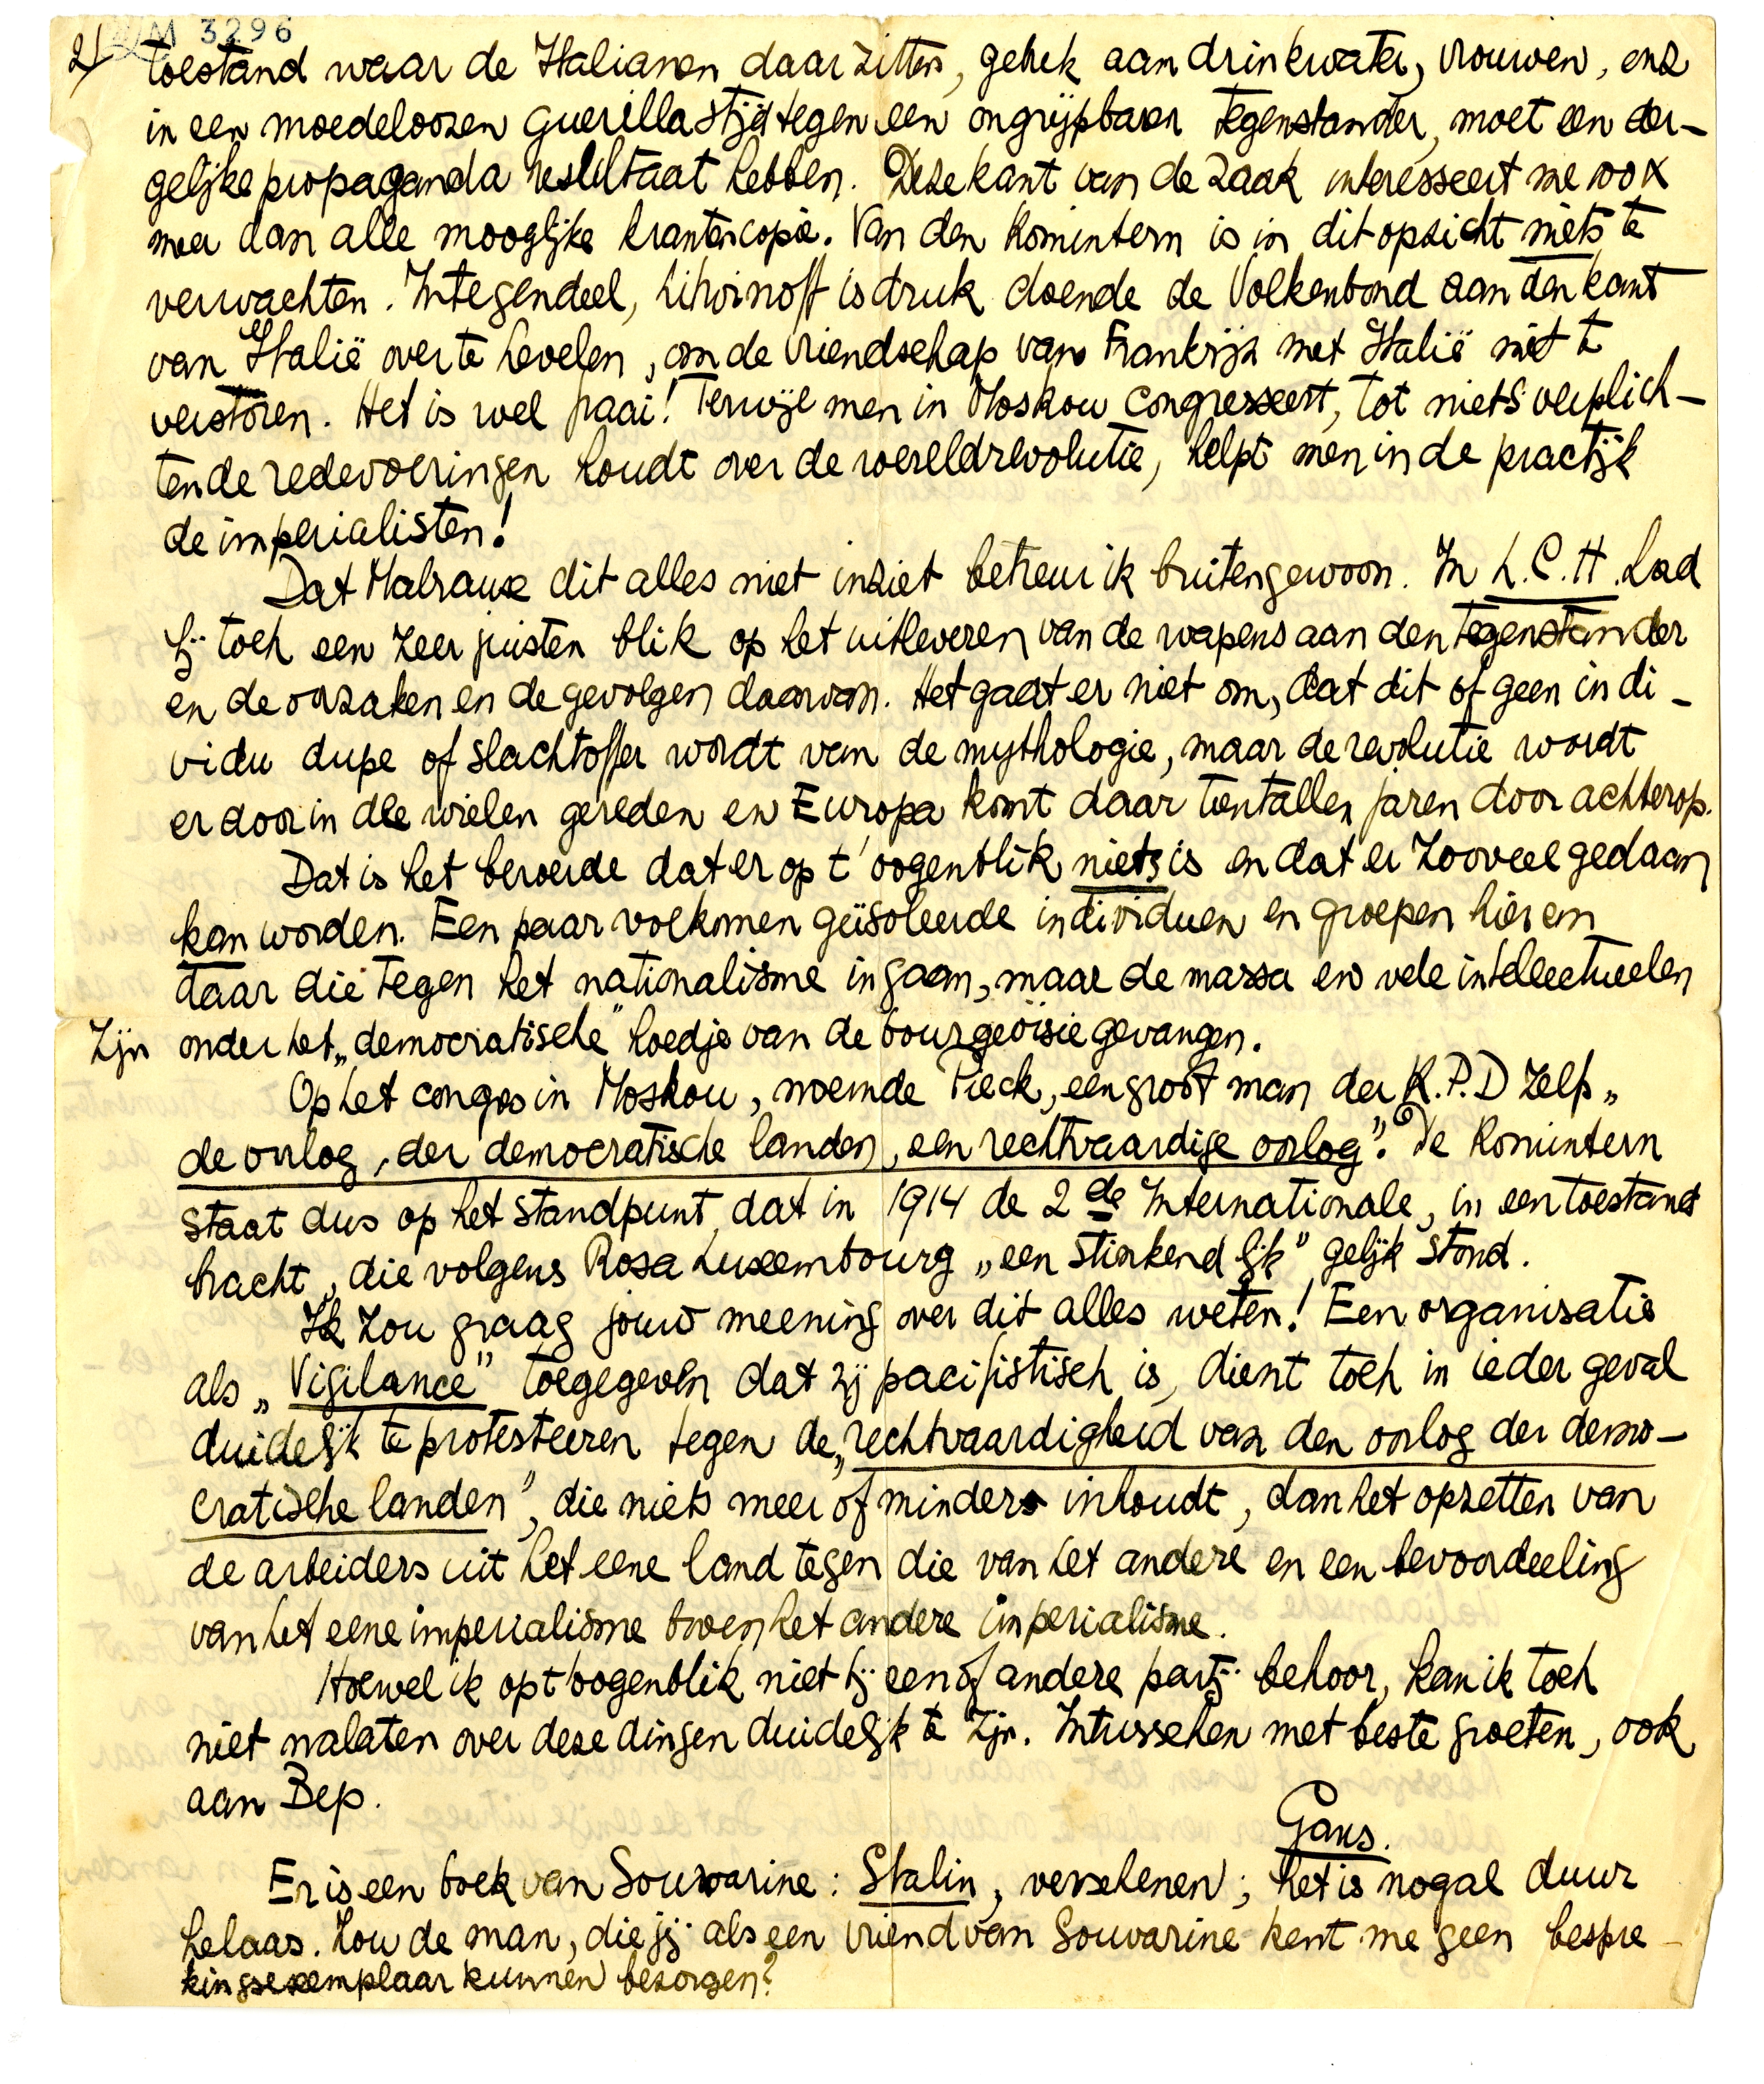 M 3296
2/ toestand waar de Italianen daar zitten, gebrek aan drinkwater, vrouwen, enz
in een moedeloozen guerillastrijd tegen een ongrijpbaar tegenstander, moet een der-
gelijke propaganda resultaat hebben. Deze kant van de zaak interesseert me 100 x
meer dan alle mooglijke krantencopie. Van den Komintern is in dit opzicht niets te
verwachten. Integendeel, Litwinoff is druk doende de Volkenbond aan den kant
van Italië over te hevelen, om de vriendschap van Frankrijk met Italië niet te
verstoren. Het is wel fraai! Terwijl men in Moskou congresseert, tot niets verplich-
tende redevoeringen houdt over de wereldrevolutie, helpt men in de practijk
de imperialisten!
Dat Malraux dit alles niet inziet betreur ik buitengewoon. In L.C.H. had
hij toch een zeer juisten blik op het uitleveren van de wapens aan den tegenstander
en de oorzaken en de gevolgen daarvan. Het gaat er niet om, dat dit of geen indi-
vidu dupe of slachtoffer wordt van de mythologie, maar de revolutie wordt
er door in de wielen gereden en Europa komt daar tientallen jaren door achterop.
Dat is het beroerde dat er op t' oogenblik niets is en dat er zooveel gedaan
kan worden. Een paar volkomen geïsoleerde individuen en groepen hier en
daar die tegen het nationalisme ingaan, maar de massa en vele intellectueelen
zijn onder het „democratische" hoedje van de bourgeoisie gevangen.
Op het congres in Moskou, noemde Pieck, een groot man der K.P.D zelfs „
de oorlog, der democratische landen, een rechtvaardige oorlog". De Komintern
staat dus op het standpunt, dat in 1914 de 2de Internationale, in een toestand
bracht, die volgens Rosa Luxembourg „een stinkend lijk" gelijk stond.
Ik zou graag jouw meening over dit alles weten! Een organisatie
als „Vigilance" toegegeven dat zij pacifistisch is, dient toch in ieder geval
duidelijk te protesteeren tegen de „rechtvaardigheid van den oorlog der demo-
cratische landen", die niets meer of minder inhoudt, dan het opzetten van
de arbeiders uit het eene land tegen die van het andere en een bevoordeeling
van het eene imperialisme boven het andere imperialisme.
Hoewel ik op t oogenblik niet bij een of andere partij behoor, kan ik toch
niet nalaten over deze dingen duidelijk te zijn. Intusschen met beste groeten, ook
aan Bep.
Gans.
Er is een boek van Souvarine: Stalin, verschenen; het is nogal duur
helaas. Zou de man, die jij als een vriend van Souvarine kent me geen bespre-
kingsexemplaar kunnen bezorgen?